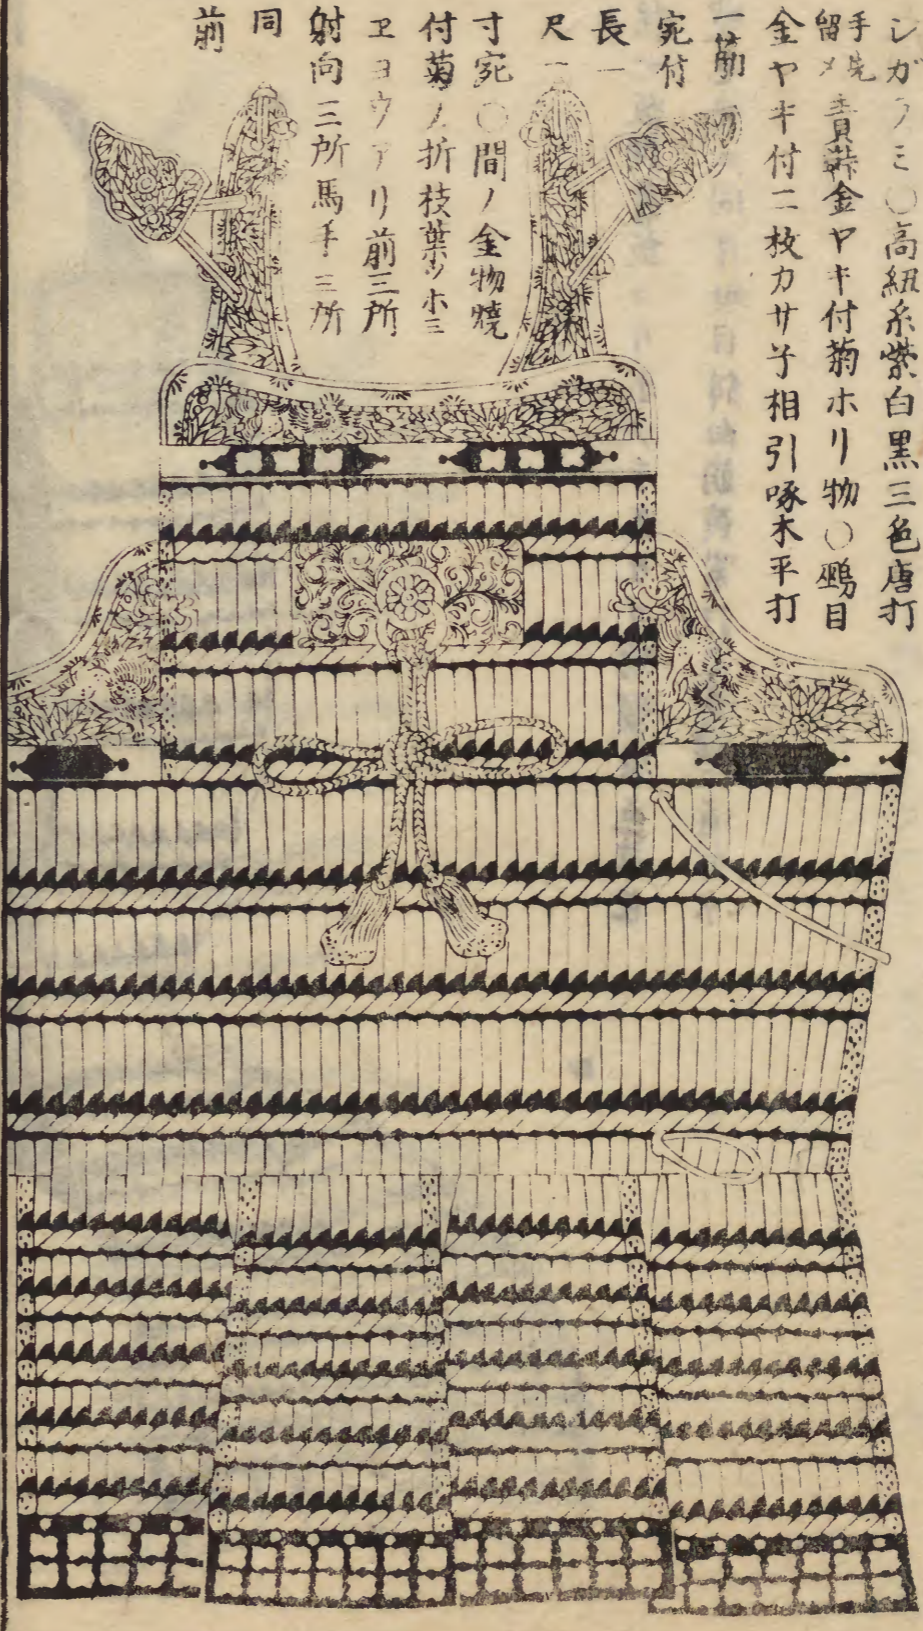 シガラミ○高紐糸紫白黒三色唐打
手先
留メ責鞐金ヤキ付菊ホリ物○鵐目
金ヤキ付二枚カサ子相引啄木平打
一筋
宛付
長一
尺一
寸宛○間ノ金物燒
付菊ノ折枝葉ツホミ
ヱヨウアリ前三所
射向三所馬手三所
同
前